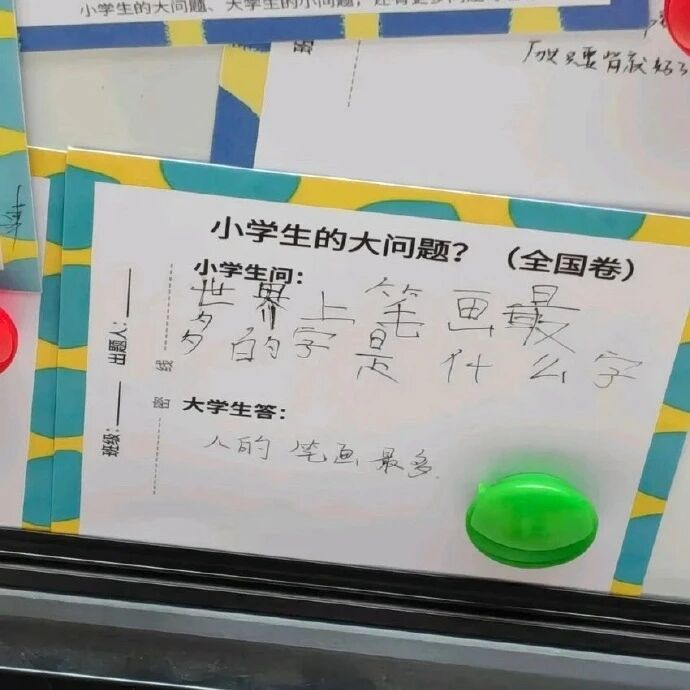 小学生的大问题、大学生的小问题,还有更多问题
密
只要背就好了
小学生的大问题？（全国卷）
小学生问：
世界上笔画最
多的字是什么字
大学生答：
人的笔画最多.
班级：
出题人：
密
线